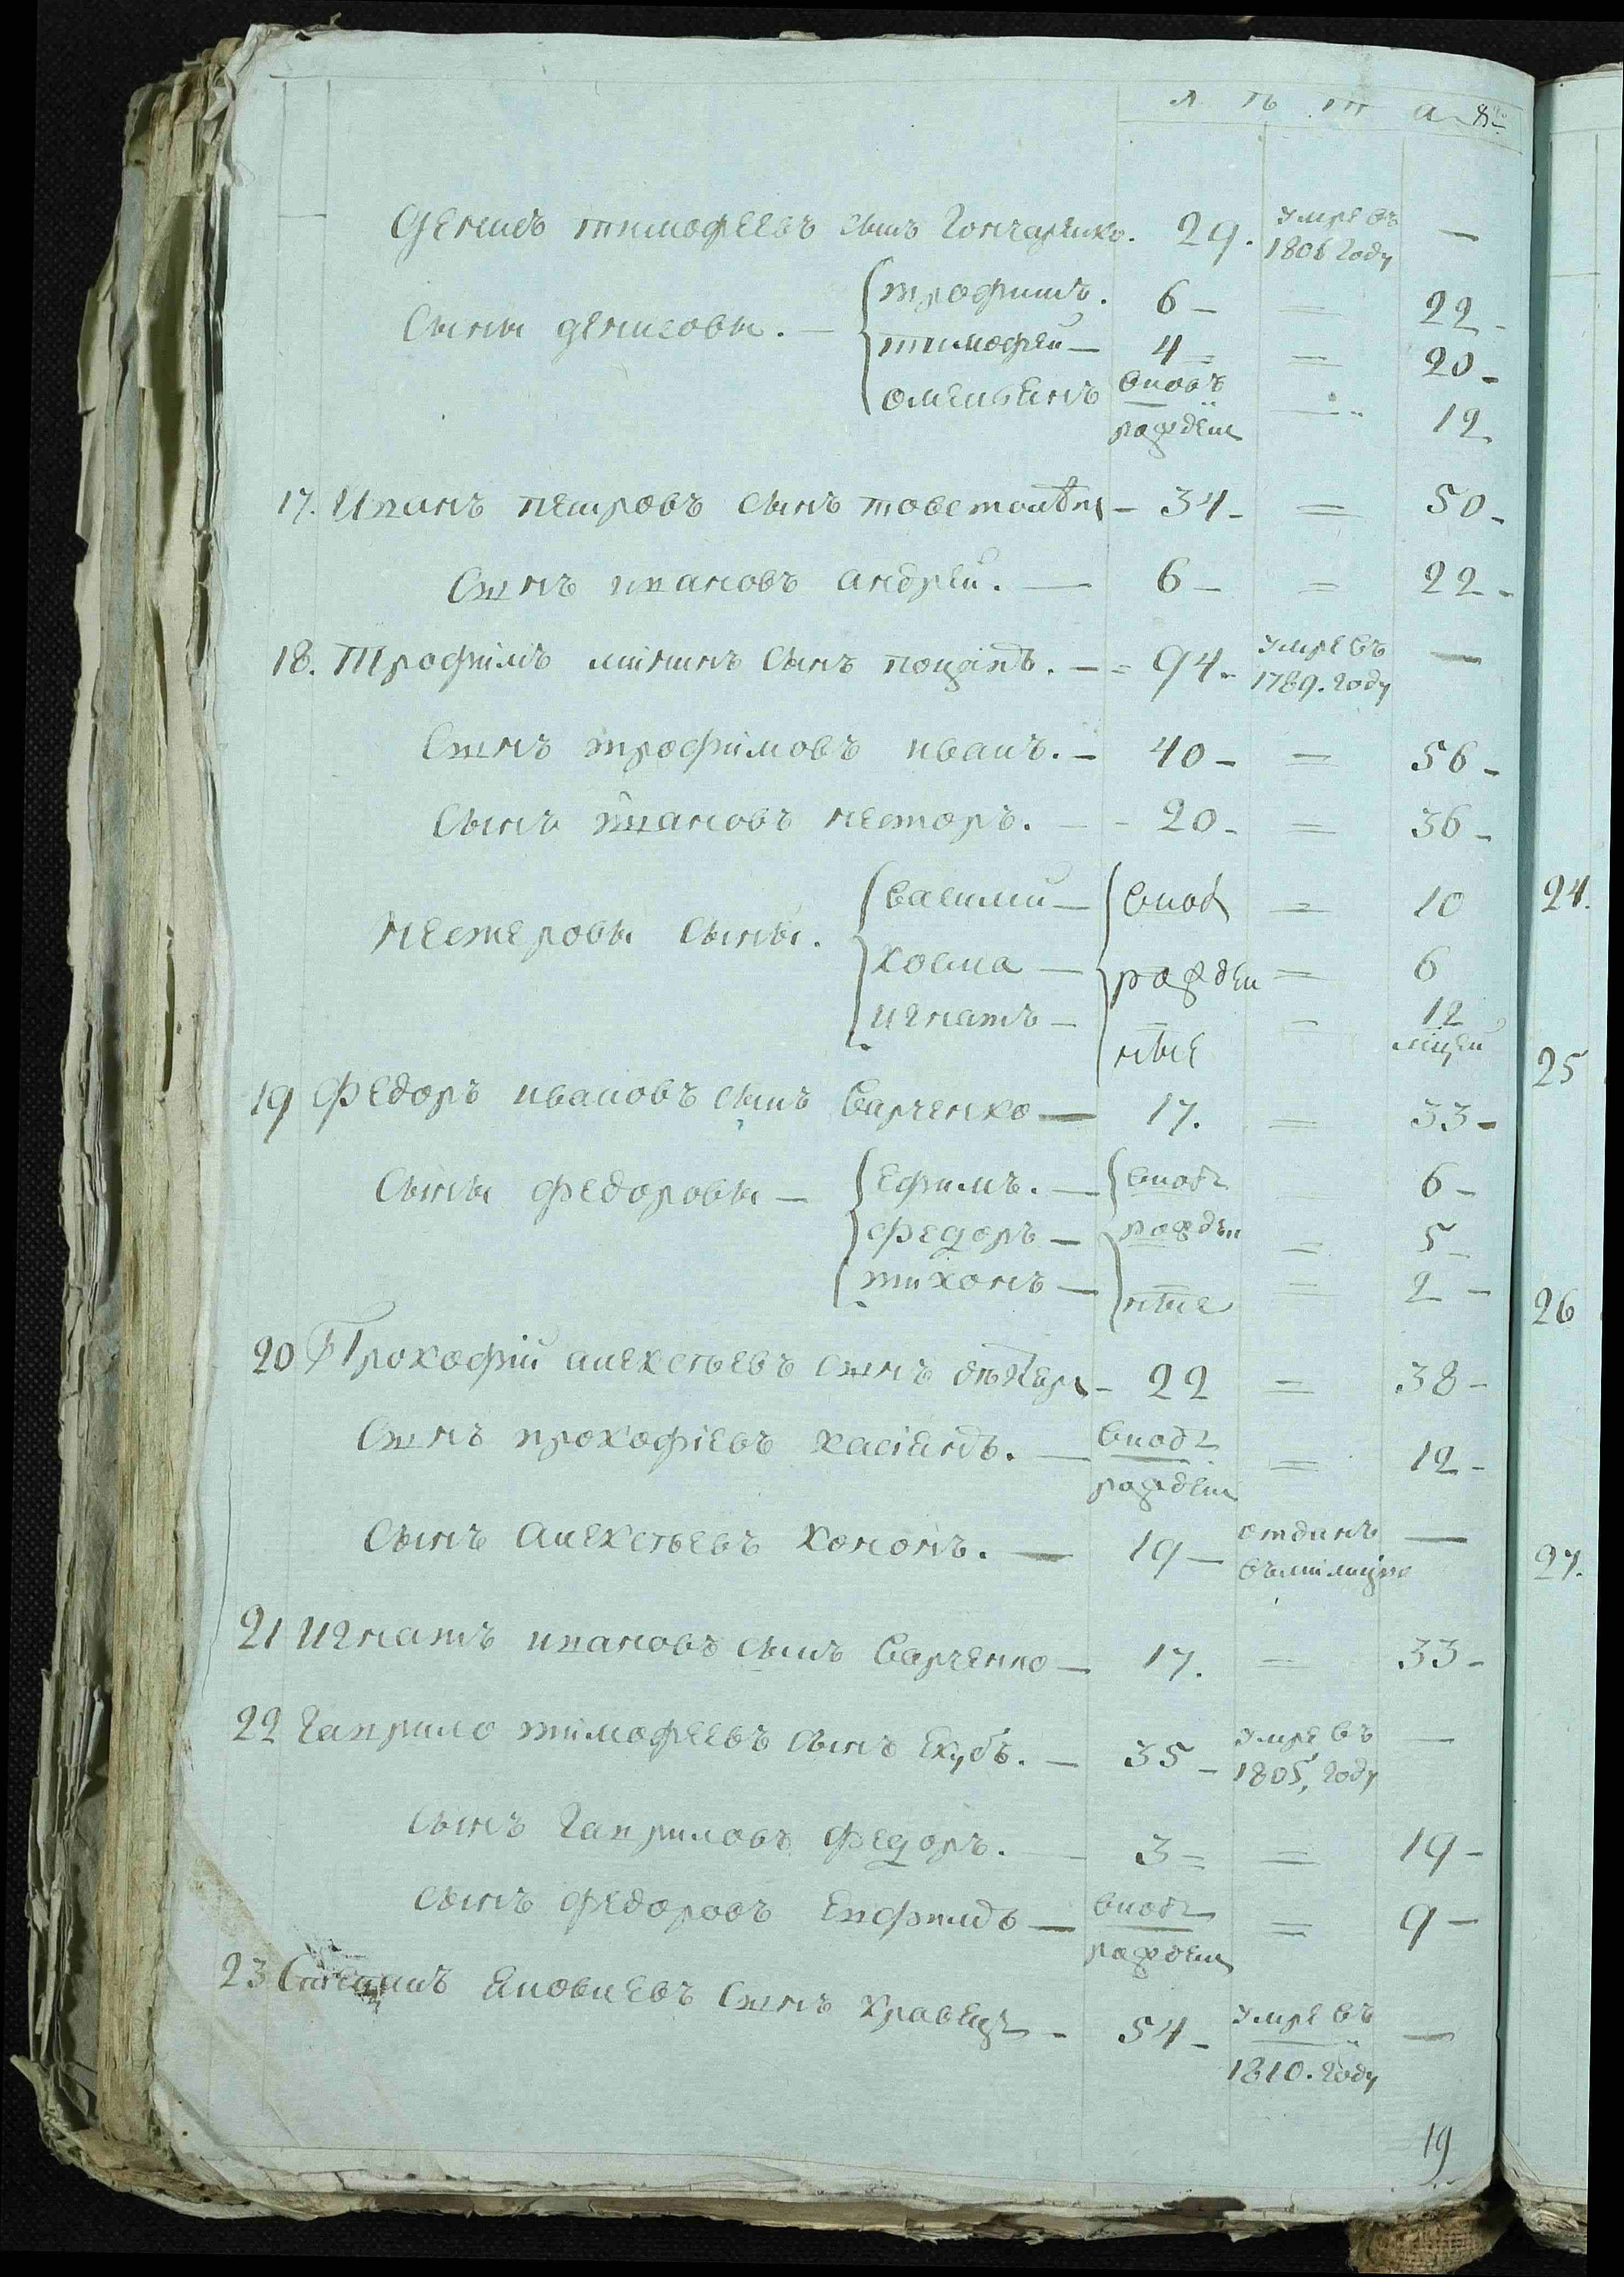 л ѣ т а
Денисъ тимофеевъ сынъ Гончаренко. 29. умре въ 1806 году —
Сыны денисовы. — трофимъ. 6 — = 22 -
тимофей — 4 = = 20 -
омельянъ вновь рожден — 12
17. Иванъ петровъ сынъ — 34 - = 50 -
Сынъ ивановъ андрей. — 6 — = 22 -
18. Трофимъ мининъ сынъ — = 94 - умре въ 1789. году —
Сынъ трофимовъ иванъ. — 40 — = 56 -
Сынъ ивановъ несторъ. — - 20 - = 36 -
нестеровы сыны. василий — вновь = 10
косма — рожден = 6
игнатъ — ные - 12 мцей
19 Федоръ ивановъ сынъ Варченко — 17. = 33 -
Сыны федоровы — ефимъ. — вновь 6 -
федоръ — рожден = 5 -
тихонъ — ные = 2 -
20 Прокофий алексеевъ сынъ - 22 = 38 -
Сынъ прокофіевъ касіянъ. — вновь рожден = 12 -
Сынъ алексеевъ кононъ. — 19 — отданъ въ милицію —
21 Игнатъ ивановъ сынъ Варченко — 17. = 33 -
22 Гаврило тимофеевъ сынъ Якубъ. — 35 — умре въ 1805, году —
Сынъ Гавриловъ федоръ. — 3 = = 19 -
Сынъ федоровъ Евфимъ — вновь рожден = 9 —
23 Степанъ Яковлевъ Сынъ кравецъ - 54 - умре въ 1810. году —
19
24.
25
26
27.